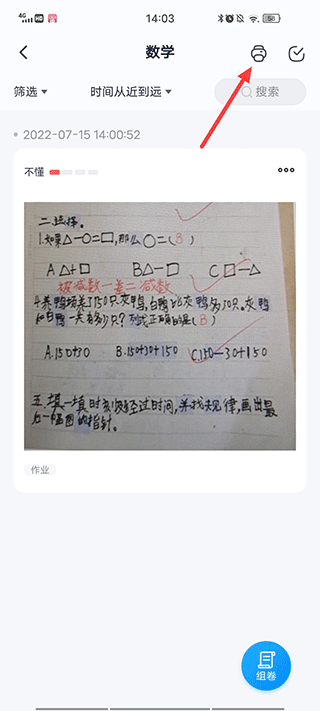 4G
14:03
58
数学
筛选
时间从近到远
搜索
2022-07-15 14:00:52
不懂
二.选择。
1.如果△-○=□,那么○=(B)
A △+□ B △-□ C □-△
被减数-差=减数
4.养鸭场养了150只灰鸭,白鸭比灰鸭多30只。灰鸭
和白鸭一共有多少只?列式正确的是(B)
A.150+30 B.150+30+150 C.150-30+150
五.填一填时刻或经过时间,并找规律,画出最
后一幅图的指针。
作业
组卷